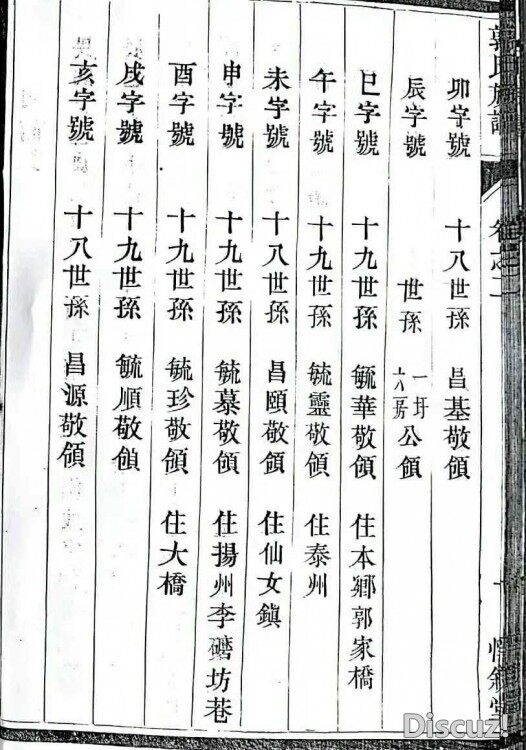 郭氏族譜
卷之二
卯字號 十八世孫 昌基敬領
辰字號 世孫 一圩六房公領
巳字號 十九世孫 毓華敬領 住本鄉郭家橋
午字號 十九世孫 毓靈敬領 住泰州
未字號 十八世孫 昌頤敬領 住仙女鎮
申字號 十九世孫 毓慕敬領 住揚州李礳坊巷
酉字號 十九世孫 毓珍敬領 住大橋
戌字號 十九世孫 毓順敬領
亥字號 十八世孫 昌源敬領
Discuz!